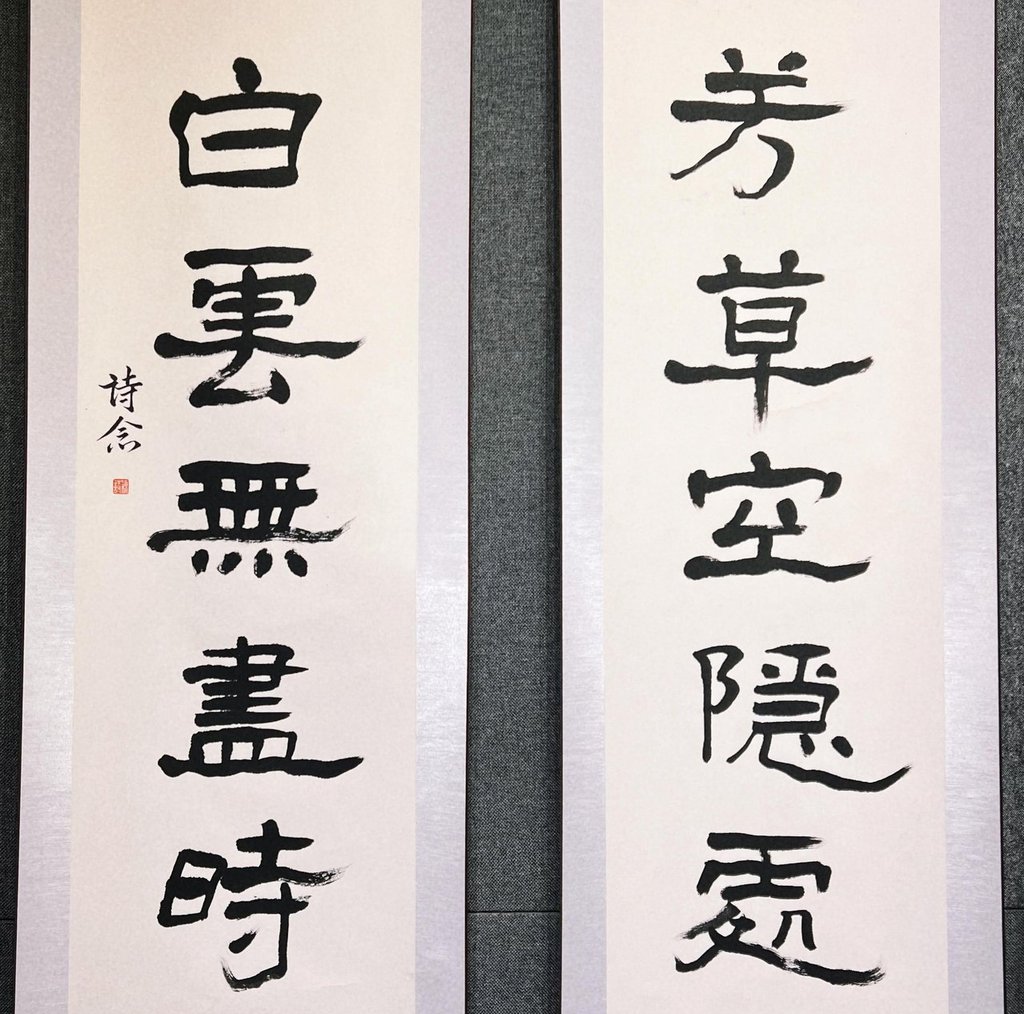 芳草空隱處
白雲無盡時
诗念